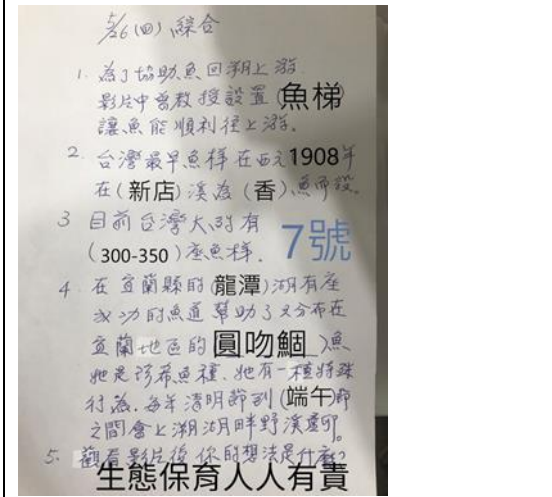 5/26(四)綜合
1. 為了協助魚回溯上游
影片中曾教授設置(魚梯
讓魚能順利往上游.
2. 台灣最早魚梯在西元1908年
在(新店)溪為(香)魚而設
3 目前台灣大約有
(300-350)座魚梯. 7號
4. 在宜蘭縣的(龍潭)湖有座
成功的魚道幫助了只分布在
宜蘭地區的 圓吻鯝 )魚
牠是珍希魚種.牠有一種特殊
行為.每年清明節到(端午)節
之間會上溯湖畔野溪產卵.
5. 觀看影片後你的想法是什麼?
生態保育人人有責